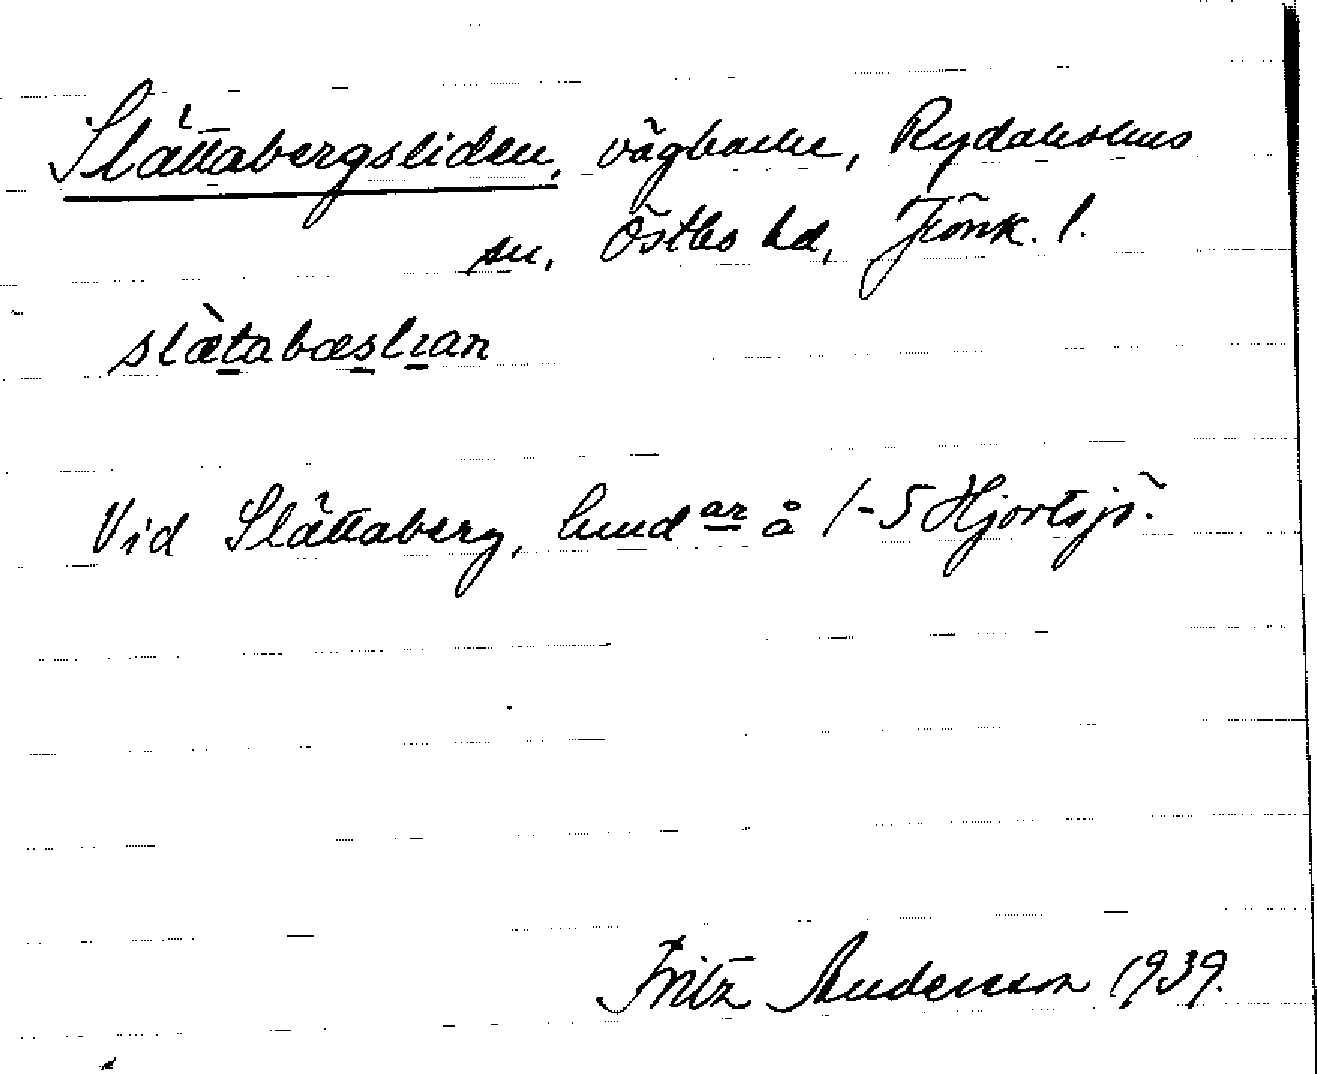 Slättabergsliden, vägbacke, Rydaholms
sn, Östbo hd, Jönk. l.
slætabæslian
Vid Slättaberg, lund ar å 1-5 Hjortsjö.
Fritz Anderson 1939.